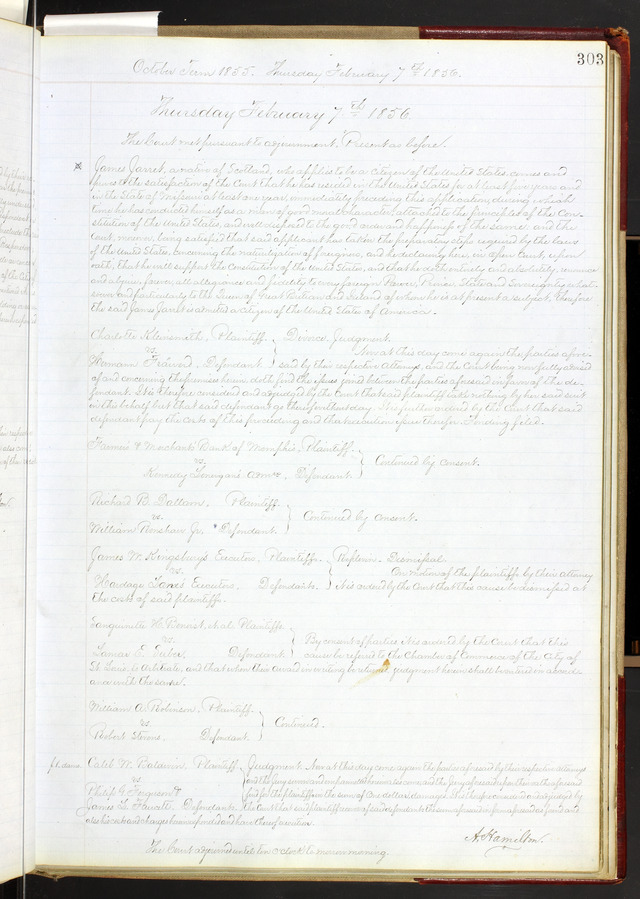 303
October Term 1855. Thursday February 7th 1856.
Thursday February 7th 1856.
The Court met pursuant to adjournment. Present as before.
James Jarret, a native of Scotland, who applies to be a citizen of the United States, comes and
proves to the satisfaction of the Court that he has resided in the United States for at least five years and
in the State of Missouri at least one year, immediately preceding this application, during which
time he has conducted himself as a man of good moral character, attached to the principles of the Con-
stitution of the United States, and well disposed to the good order and happiness of the same. and the
court, moreover, being satisfied that said applicant has taken the preparatory steps required by the laws
of the United States, concerning the naturalization of foreigners, and he declaring here, in open Court, upon
oath, that he will support the Constitution of the United States, and that he doth entirely and absolutely renounce
and abjure forever, all allegiance and fidelity to every foreign Power, Prince, State and Sovereignty whatso-
ever and particularly to the Queen of Great Britain and Ireland of whom he is at present a subject, therefore
the said James Jarret is admitted a citizen of the United States of America.
Charlotte Kleinsmith, Plaintiff. Divorce, Judgment.
vs. Now at this day come again the parties afore-
Hermann Defendant. said by their respective attorneys, and the Court being now fully advised
of and concerning the premises herein doth find the issues joined between the parties aforesaid in favor of the de-
fendant. It is therefore considered and adjudged by the Court that said plaintiff take nothing by her said suit
in this behalf but that said defendant go thereof without day. It is further ordered by the Court that said
defendant pay the costs of this proceeding and that execution issue therefor. Finding filed.
Farmers & Merchants Bank of Memphis, Plaintiff.
vs. Continued by consent.
Kennedy Defendant.
Richard B. Dallam, Plaintiff.
vs. Continued by consent.
William Renshaw Jr. Defendant.
James W. Kingsbury's Executor, Plaintiffs. Dismissed.
vs. On motion of the plaintiffs by their attorney
Hardage Lane's Executors. Defendants. it is ordered by the Court that this cause be dismissed at
the costs of said plaintiffs.
Sanguinette H. et als Plaintiffs.
vs. By consent of parties it is ordered by the Court that this
Lamar E. Defendant. cause be referred to the Chamber of Commerce of the City of
St. Louis to arbitrate, and that when their award in writing is returned judgment herein shall be entered in accord-
ance with the same.
William A. Robinson, Plaintiff.
vs. Continued.
Robert Stevens. Defendant.
Caleb W. Baldwin, Plaintiff. Judgment. Now at this day come again the parties aforesaid by their respective attorneys
vs. and the jury sworn and empannelled herein also come and the jury aforesaid upon their oaths aforesaid
Philip G. Ferguson & find for the plaintiff in the sum of one dollar damages. It is therefore considered and adjudged by
James L. Fawcett. Defendants. the Court that said plaintiff recover of said defendants the sum aforesaid in form aforesaid as found and
also his costs and charges herein expended and have thereof execution.
The Court adjourned until ten o'clock to morrow morning.
A. Hamilton.